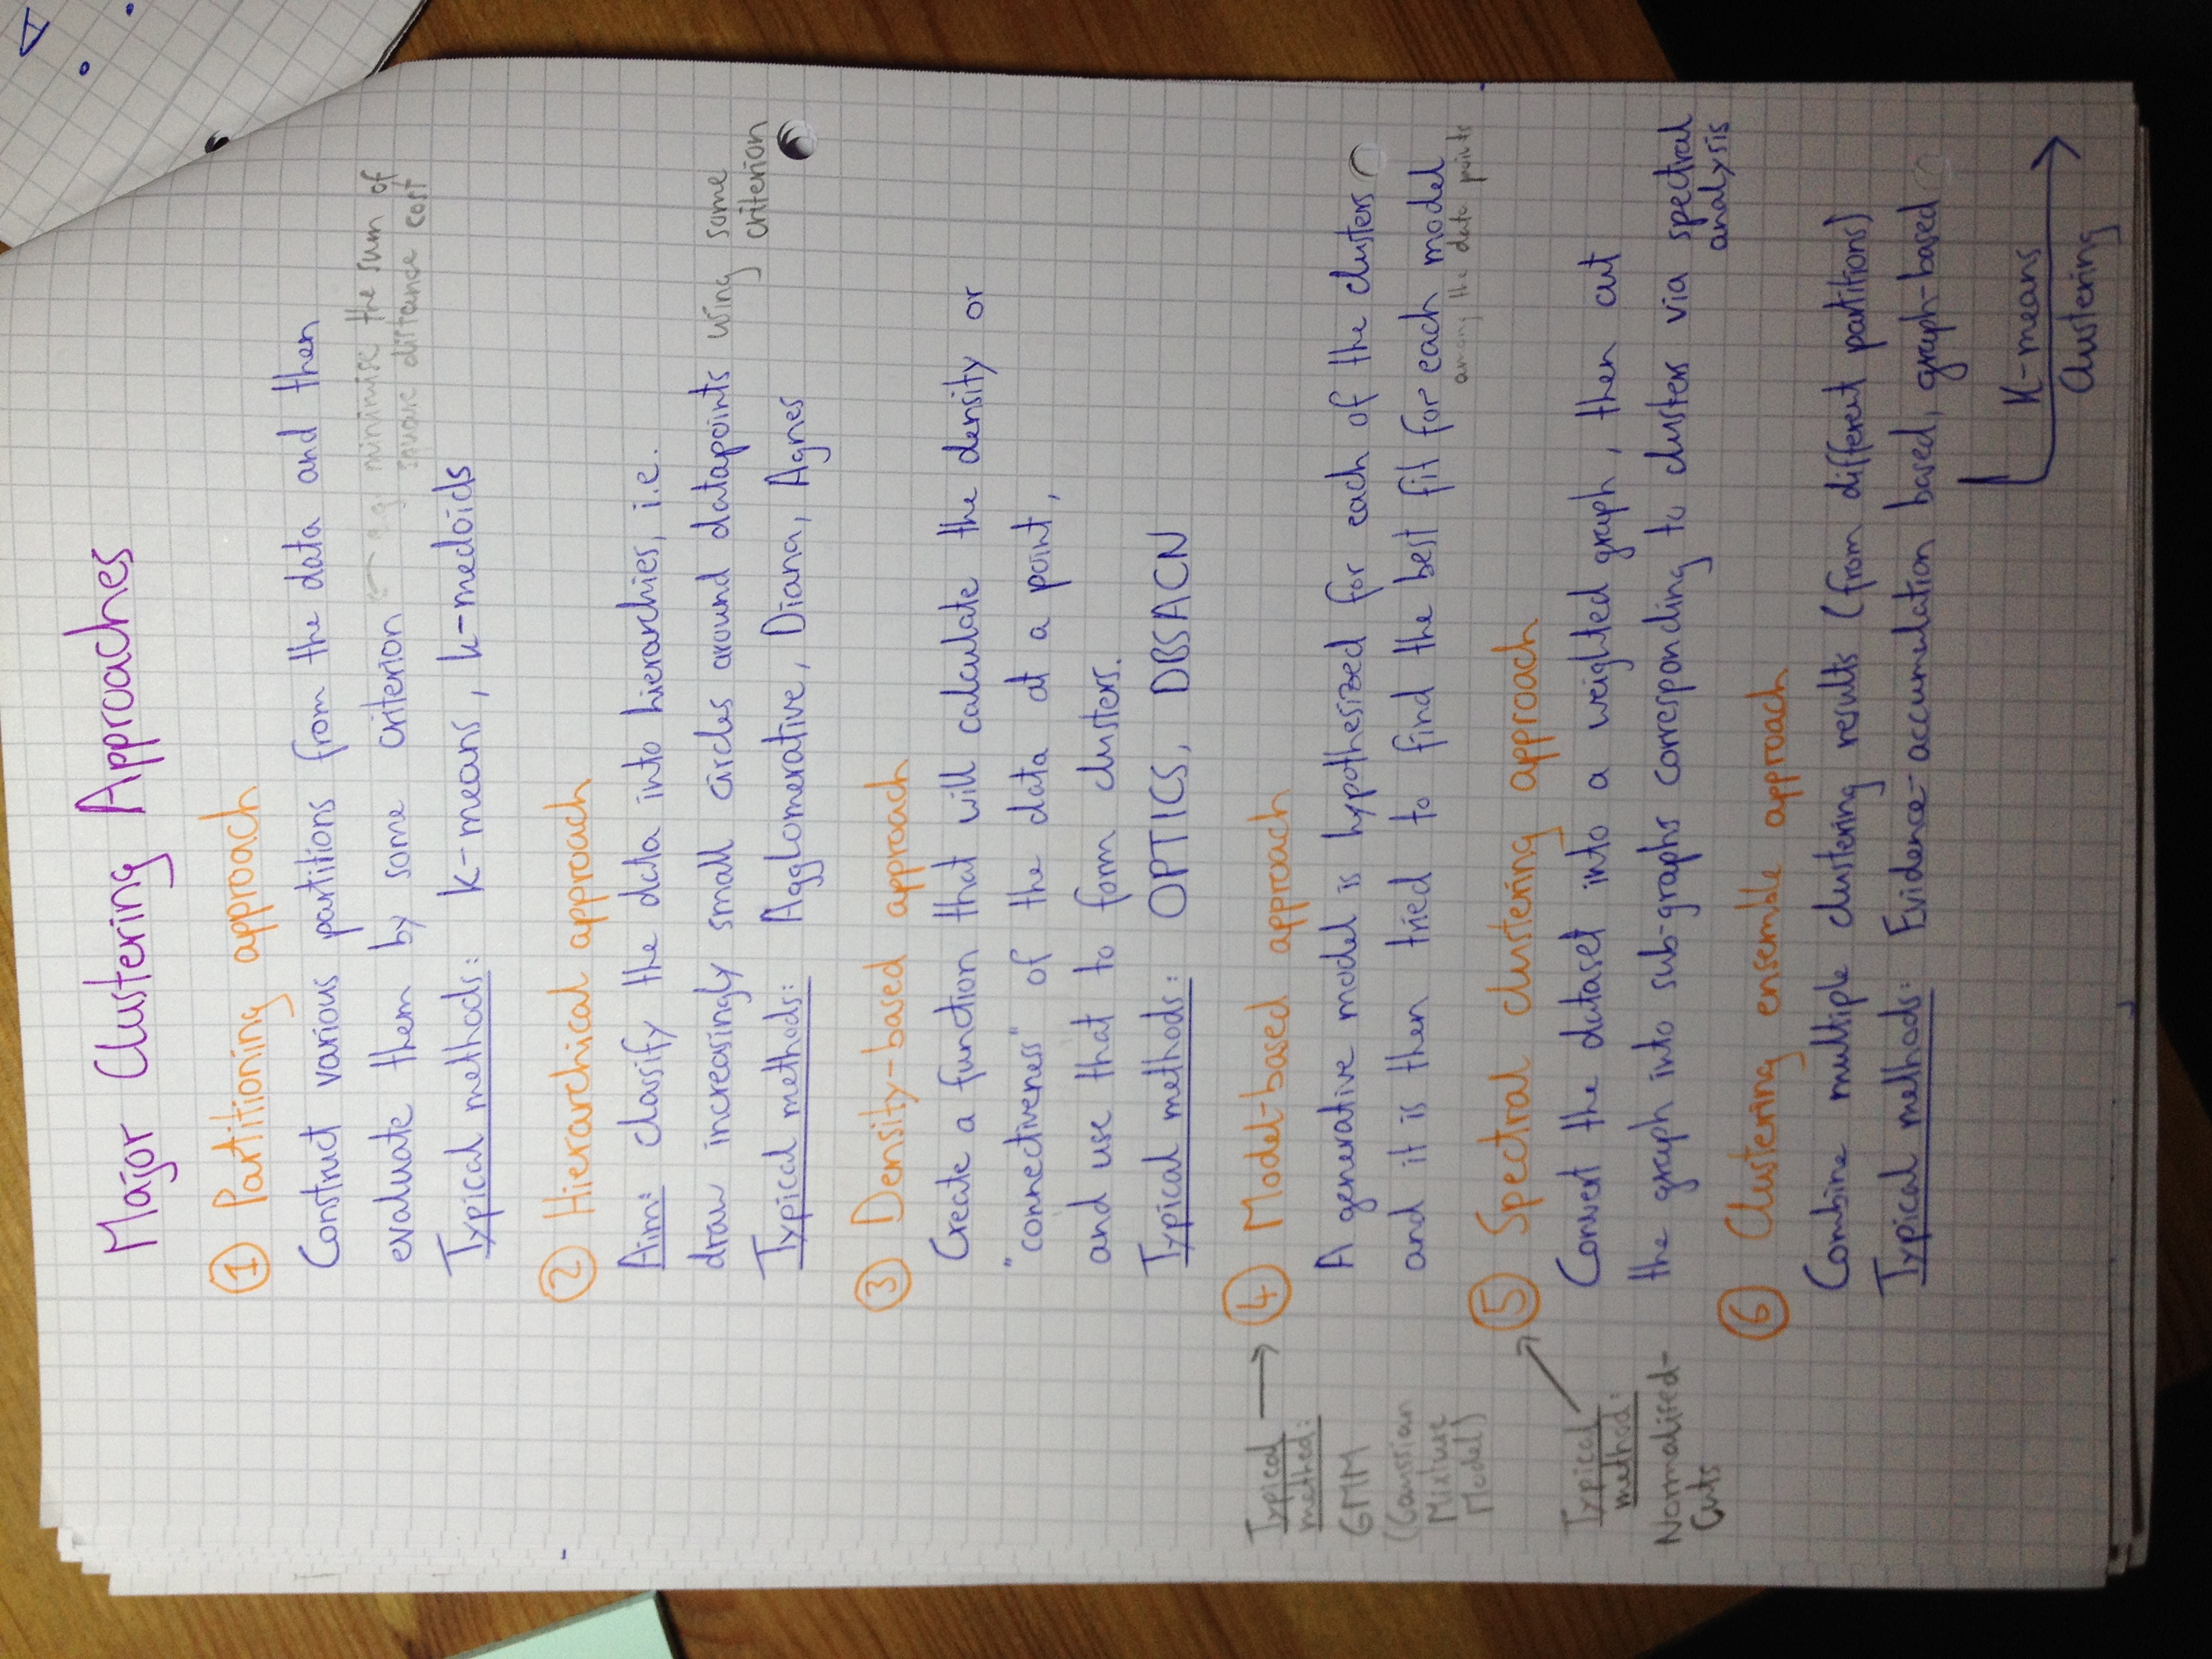 Major Clustering Approaches
① Partitioning approach
Construct various partitions from the data and then
evaluate them by some criterion ← e.g. minimise the sum of
square distance cost
Typical methods: k-means, k-medoids
② Hierarchical approach
Aim: classify the data into hierarchies, i.e.
draw increasingly small circles around datapoints using some
criterion
Typical methods: Agglomerative, Diana, Agnes
③ Density-based approach
Create a function that will calculate the density or
"connectiveness" of the data at a point,
and use that to form clusters.
Typical methods: OPTICS, DBSACN
④ Model-based approach
Typical
method:
GMM
(Gaussian
Mixture
Model)
A generative model is hypothesized for each of the clusters
and it is then tried to find the best fit for each model
among the data points
⑤ Spectral clustering approach
Typical
method:
Normalised-
Cuts
Convert the dataset into a weighted graph, then cut
the graph into sub-graphs corresponding to clusters via spectral
analysis
⑥ Clustering ensemble approach
Combine multiple clustering results (from different partitions)
Typical methods: Evidence-accumulation based, graph-based
K-means
Clustering
A